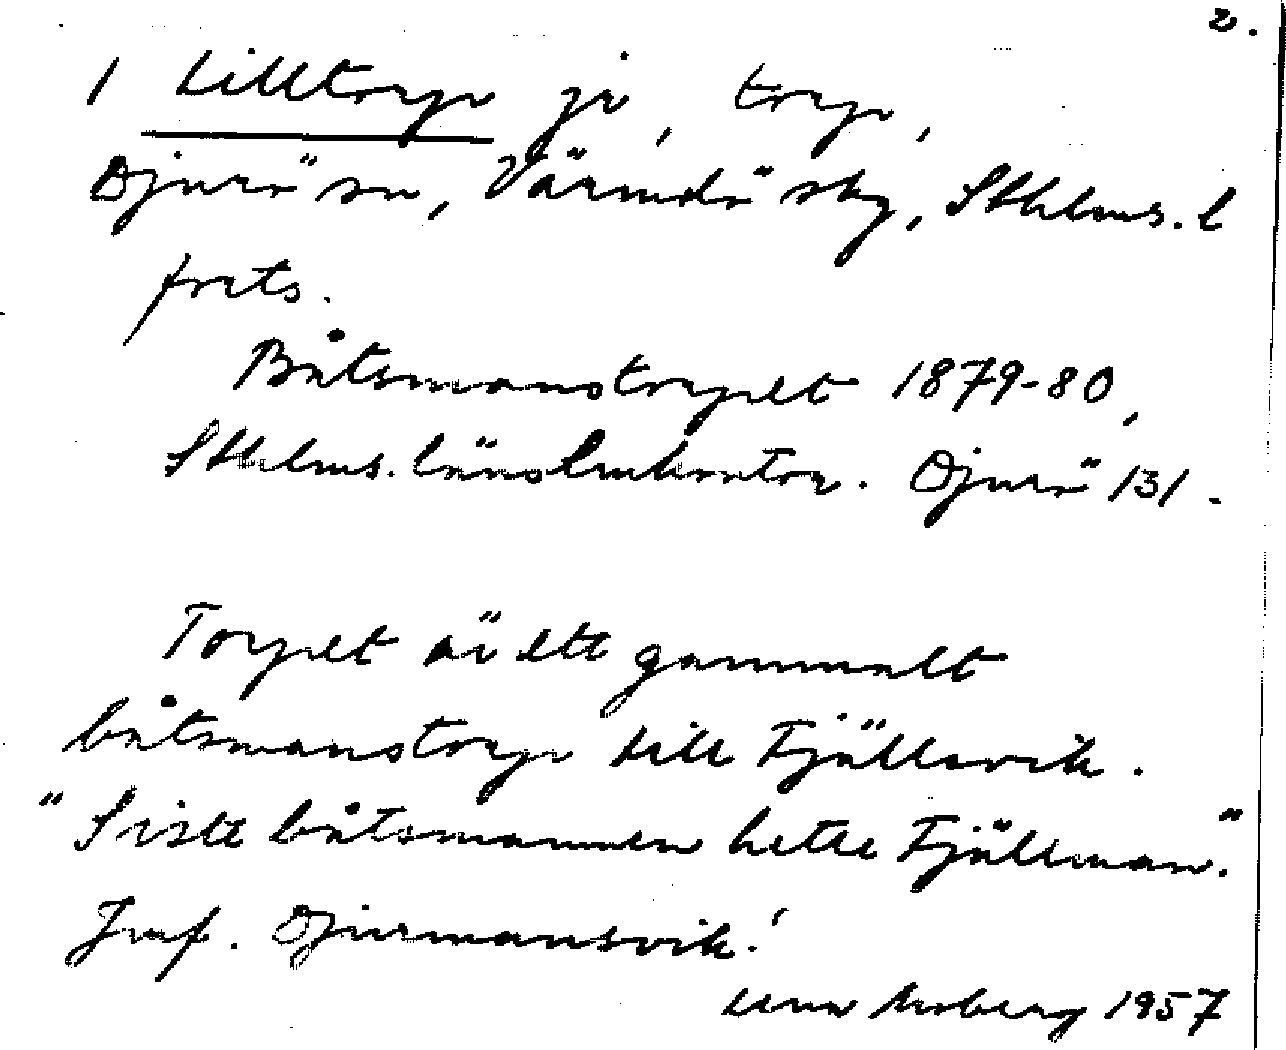 2.
1 Lilltorp ja, torp,
Djurö sn, Värmdö skg, Sthlms. l
forts.
Båtsmanstorpet 1879-80,
Sthlms. länslmkontor. Djurö 131.
Torpet är ett gammalt
båtsmanstorp till Fjällsvik.
"Siste båtsmannen hette Fjällman."
Jmf. Djurmansvik!
Moberg 1957